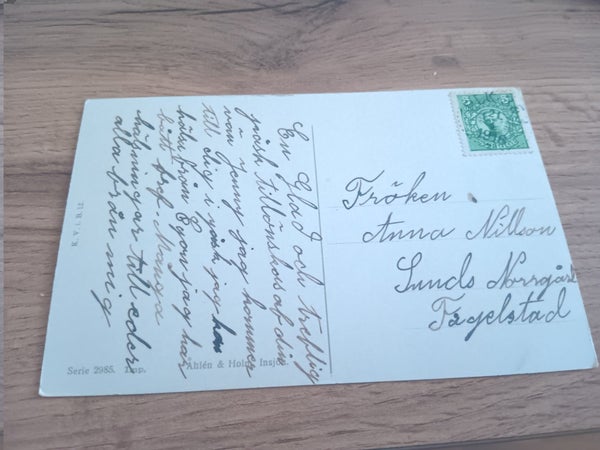 En Glad och treflig
julh tillönskas af din
vän Jenny jag kommer
till dig i julh jag har
hört från Egon jag har
fått bref. Många
hälsningar till eder
alla från mig
Fröken
Anna Nillson
Lunds Norrgård
Fagelstad
K. v. i. B. 12
Serie 2985. Imp. Ahlén & Holm, Insjön.